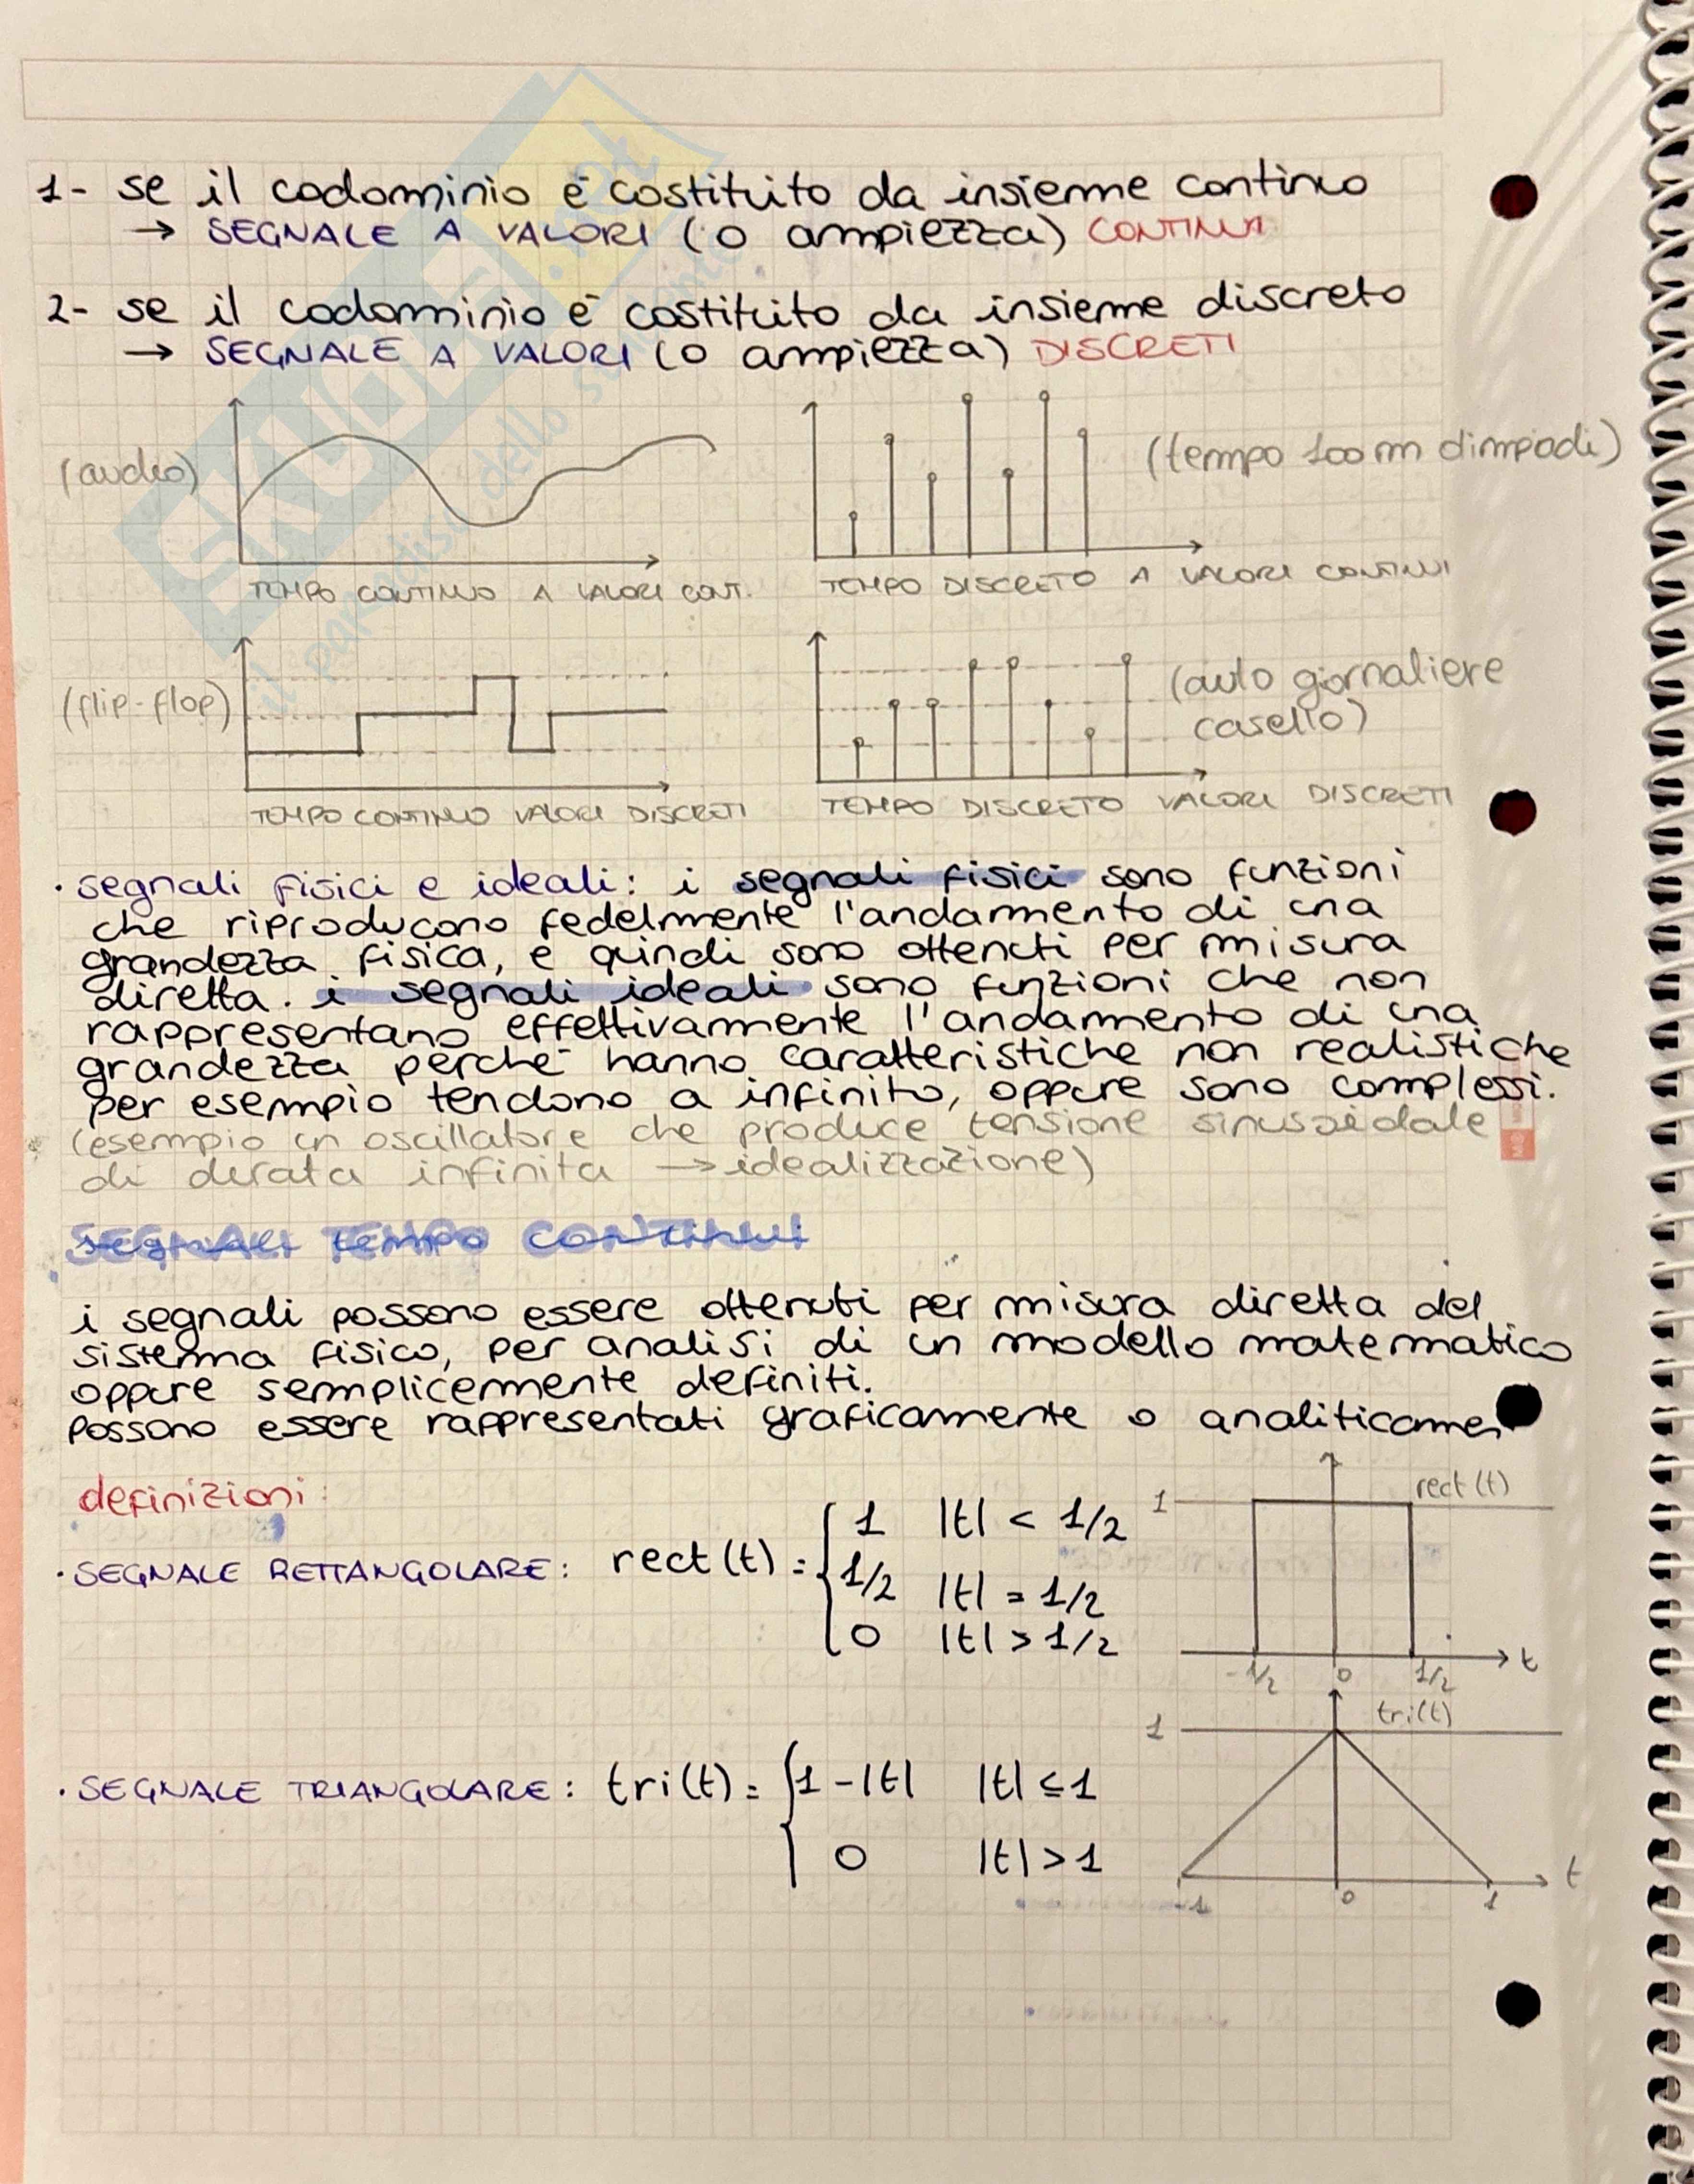 1- se il codominio è costituito da insieme continuo
→ SEGNALE A VALORI (o ampiezza) CONTINUI
2- se il codominio è costituito da insieme discreto
→ SEGNALE A VALORI (o ampiezza) DISCRETI
(audio)
(tempo 100 m olimpiadi)
TEMPO CONTINUO A VALORI CONT.
TEMPO DISCRETO A VALORI CONTINUI
(flip-flop)
(auto giornaliere
casello)
TEMPO CONTINUO VALORI DISCRETI
TEMPO DISCRETO VALORI DISCRETI
· segnali fisici e ideali: i segnali fisici sono funzioni
che riproducono fedelmente l'andamento di una
grandezza fisica, e quindi sono ottenuti per misura
diretta. i segnali ideali sono funzioni che non
rappresentano effettivamente l'andamento di una
grandezza perché hanno caratteristiche non realistiche
per esempio tendono a infinito, oppure sono complessi.
(esempio un oscillatore che produce tensione sinusoidale
di durata infinita → idealizzazione)
SEGNALI TEMPO CONTINUI
i segnali possono essere ottenuti per misura diretta del
sistema fisico, per analisi di un modello matematico
oppure semplicemente definiti.
Possono essere rappresentati graficamente o analiticamen
definizioni:
· SEGNALE RETTANGOLARE: rect(t) = { 1 |t| < 1/2
1/2 |t| = 1/2
0 |t| > 1/2
1 rect(t)
-1/2 0 1/2 t
· SEGNALE TRIANGOLARE: tri(t) = { 1-|t| |t| ≤ 1
0 |t| > 1
1 tri(t)
-1 0 1 t
SKUOLA.net
il paradiso dello studente